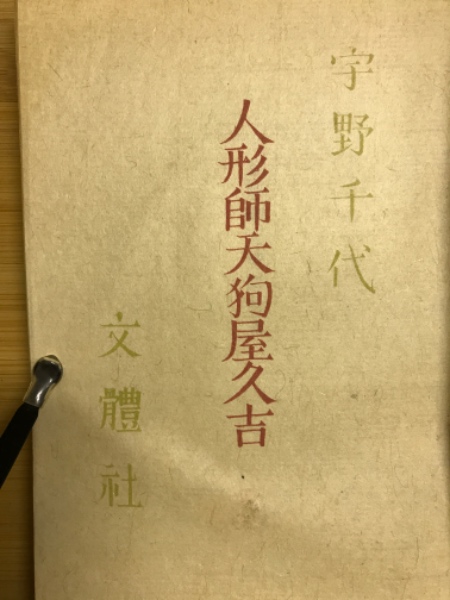 宇野千代
人形師天狗屋久吉
文體社